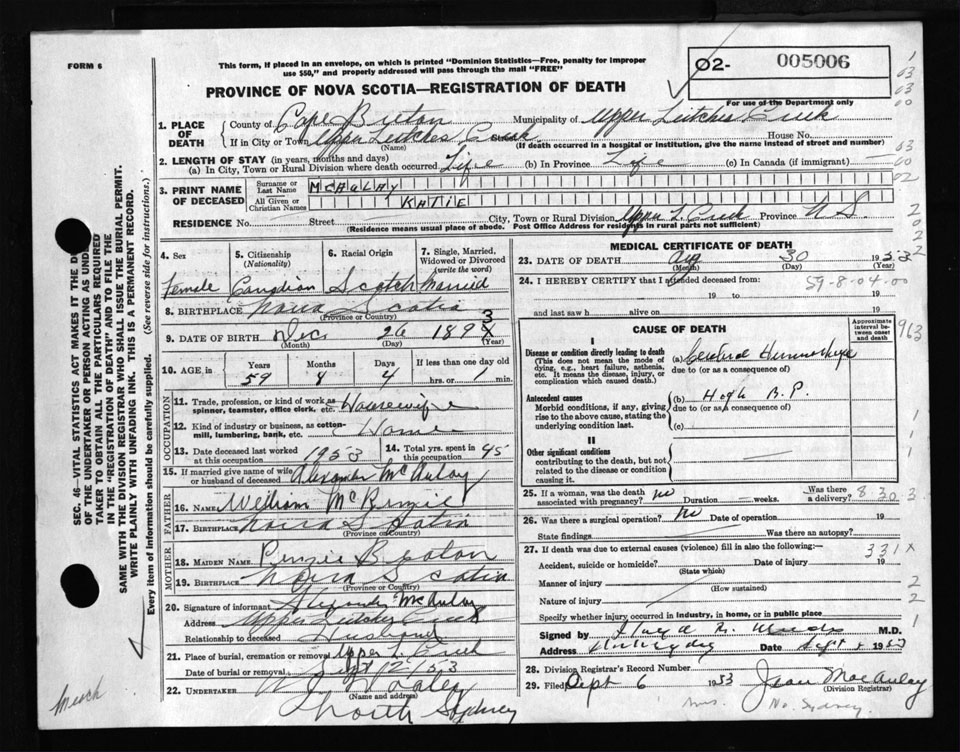 FORM 6
This form, if placed in an envelope, on which is printed "Dominion Statistics—Free, penalty for improper
use $50," and properly addressed will pass through the mail "FREE"
02- 005006
For use of the Department only
PROVINCE OF NOVA SCOTIA—REGISTRATION OF DEATH
1. PLACE OF DEATH
County of Cape Breton Municipality of Upper Leitches Creek
If in City or Town Upper Leitches Creek House No.
(Name) (If death occurred in a hospital or institution, give the name instead of street and number)
2. LENGTH OF STAY (in years, months and days)
(a) In City, Town or Rural Division where death occurred Life (b) In Province Life (c) In Canada (if immigrant) —
3. PRINT NAME OF DECEASED
Surname or Last Name McAULAY
All Given or Christian Names KATIE
RESIDENCE No. Street City, Town or Rural Division Upper L. Creek Province N S.
(Residence means usual place of abode. Post Office Address for residents in rural parts not sufficient)
4. Sex 5. Citizenship (Nationality) 6. Racial Origin 7. Single, Married, Widowed or Divorced (write the word)
Female Canadian Scotch Married
8. BIRTHPLACE Nova Scotia
(Province or Country)
9. DATE OF BIRTH Dec 26 189 3
(Month) (Day) (Year)
10. AGE Years Months Days If less than one day old
59 8 4 hrs. or min.
OCCUPATION
11. Trade, profession, or kind of work as spinner, teamster, office clerk, etc. Housewife
12. Kind of industry or business, as cotton-mill, lumbering, bank, etc. Home
13. Date deceased last worked at this occupation 1953 14. Total yrs. spent in this occupation 45
15. If married give name of wife or husband of deceased Alexander McAulay
FATHER
16. NAME William McKenzie
17. BIRTHPLACE Nova Scotia
(Province or Country)
MOTHER
18. MAIDEN NAME Beaton
19. BIRTHPLACE Nova Scotia
(Province or Country)
20. Signature of informant Alexander McAulay
Address Upper Leitches Creek
Relationship to deceased Husband
21. Place of burial, cremation or removal Upper L. Creek
Date of burial or removal Sept 1 2/53
22. UNDERTAKER
(Name and address)
North Sydney
MEDICAL CERTIFICATE OF DEATH
23. DATE OF DEATH Aug 30 1953
(Month) (Day) (Year)
24. I HEREBY CERTIFY that I attended deceased from:
59-8-04-00
19 to 19
and last saw h alive on 19
CAUSE OF DEATH
Approximate interval between onset and death
I
Disease or condition directly leading to death
(This does not mean the mode of dying, e.g., heart failure, asthenia, etc. It means the disease, injury, or complication which caused death.)
(a) Cerebral Hemorrhage
due to (or as a consequence of)
Antecedent causes
Morbid conditions, if any, giving rise to the above cause, stating the underlying condition last.
(b) High B.P.
due to (or as a consequence of)
(c)
II
Other significant conditions
contributing to the death, but not related to the disease or condition causing it.
25. If a woman, was the death associated with pregnancy? No Duration weeks. Was there a delivery? 8 30 3
26. Was there a surgical operation? No Date of operation 19
State findings Was there an autopsy?
27. If death was due to external causes (violence) fill in also the following:— 331X
Accident, suicide or homicide? Date of injury 19
(State which)
Manner of injury
(How sustained)
Nature of injury
Specify whether injury occurred in industry, in home, or in public place
Signed by M.D.
Address Date Sept 1953
28. Division Registrar's Record Number 7
29. Filed Sept 6 1953 Jean MacAulay
(Division Registrar)
Mrs. No. Sydney.
SEC. 46—VITAL STATISTICS ACT MAKES IT THE
OF THE UNDERTAKER OR PERSON ACTING AS
TAKER TO OBTAIN ALL THE PARTICULARS REQUIRED
IN THE "REGISTRATION OF DEATH" AND TO FILE THE
SAME WITH THE DIVISION REGISTRAR WHO SHALL ISSUE THE BURIAL PERMIT.
WRITE PLAINLY WITH UNFADING INK. THIS IS A PERMANENT RECORD.
Every item of information should be carefully supplied. (See reverse side for instructions.)